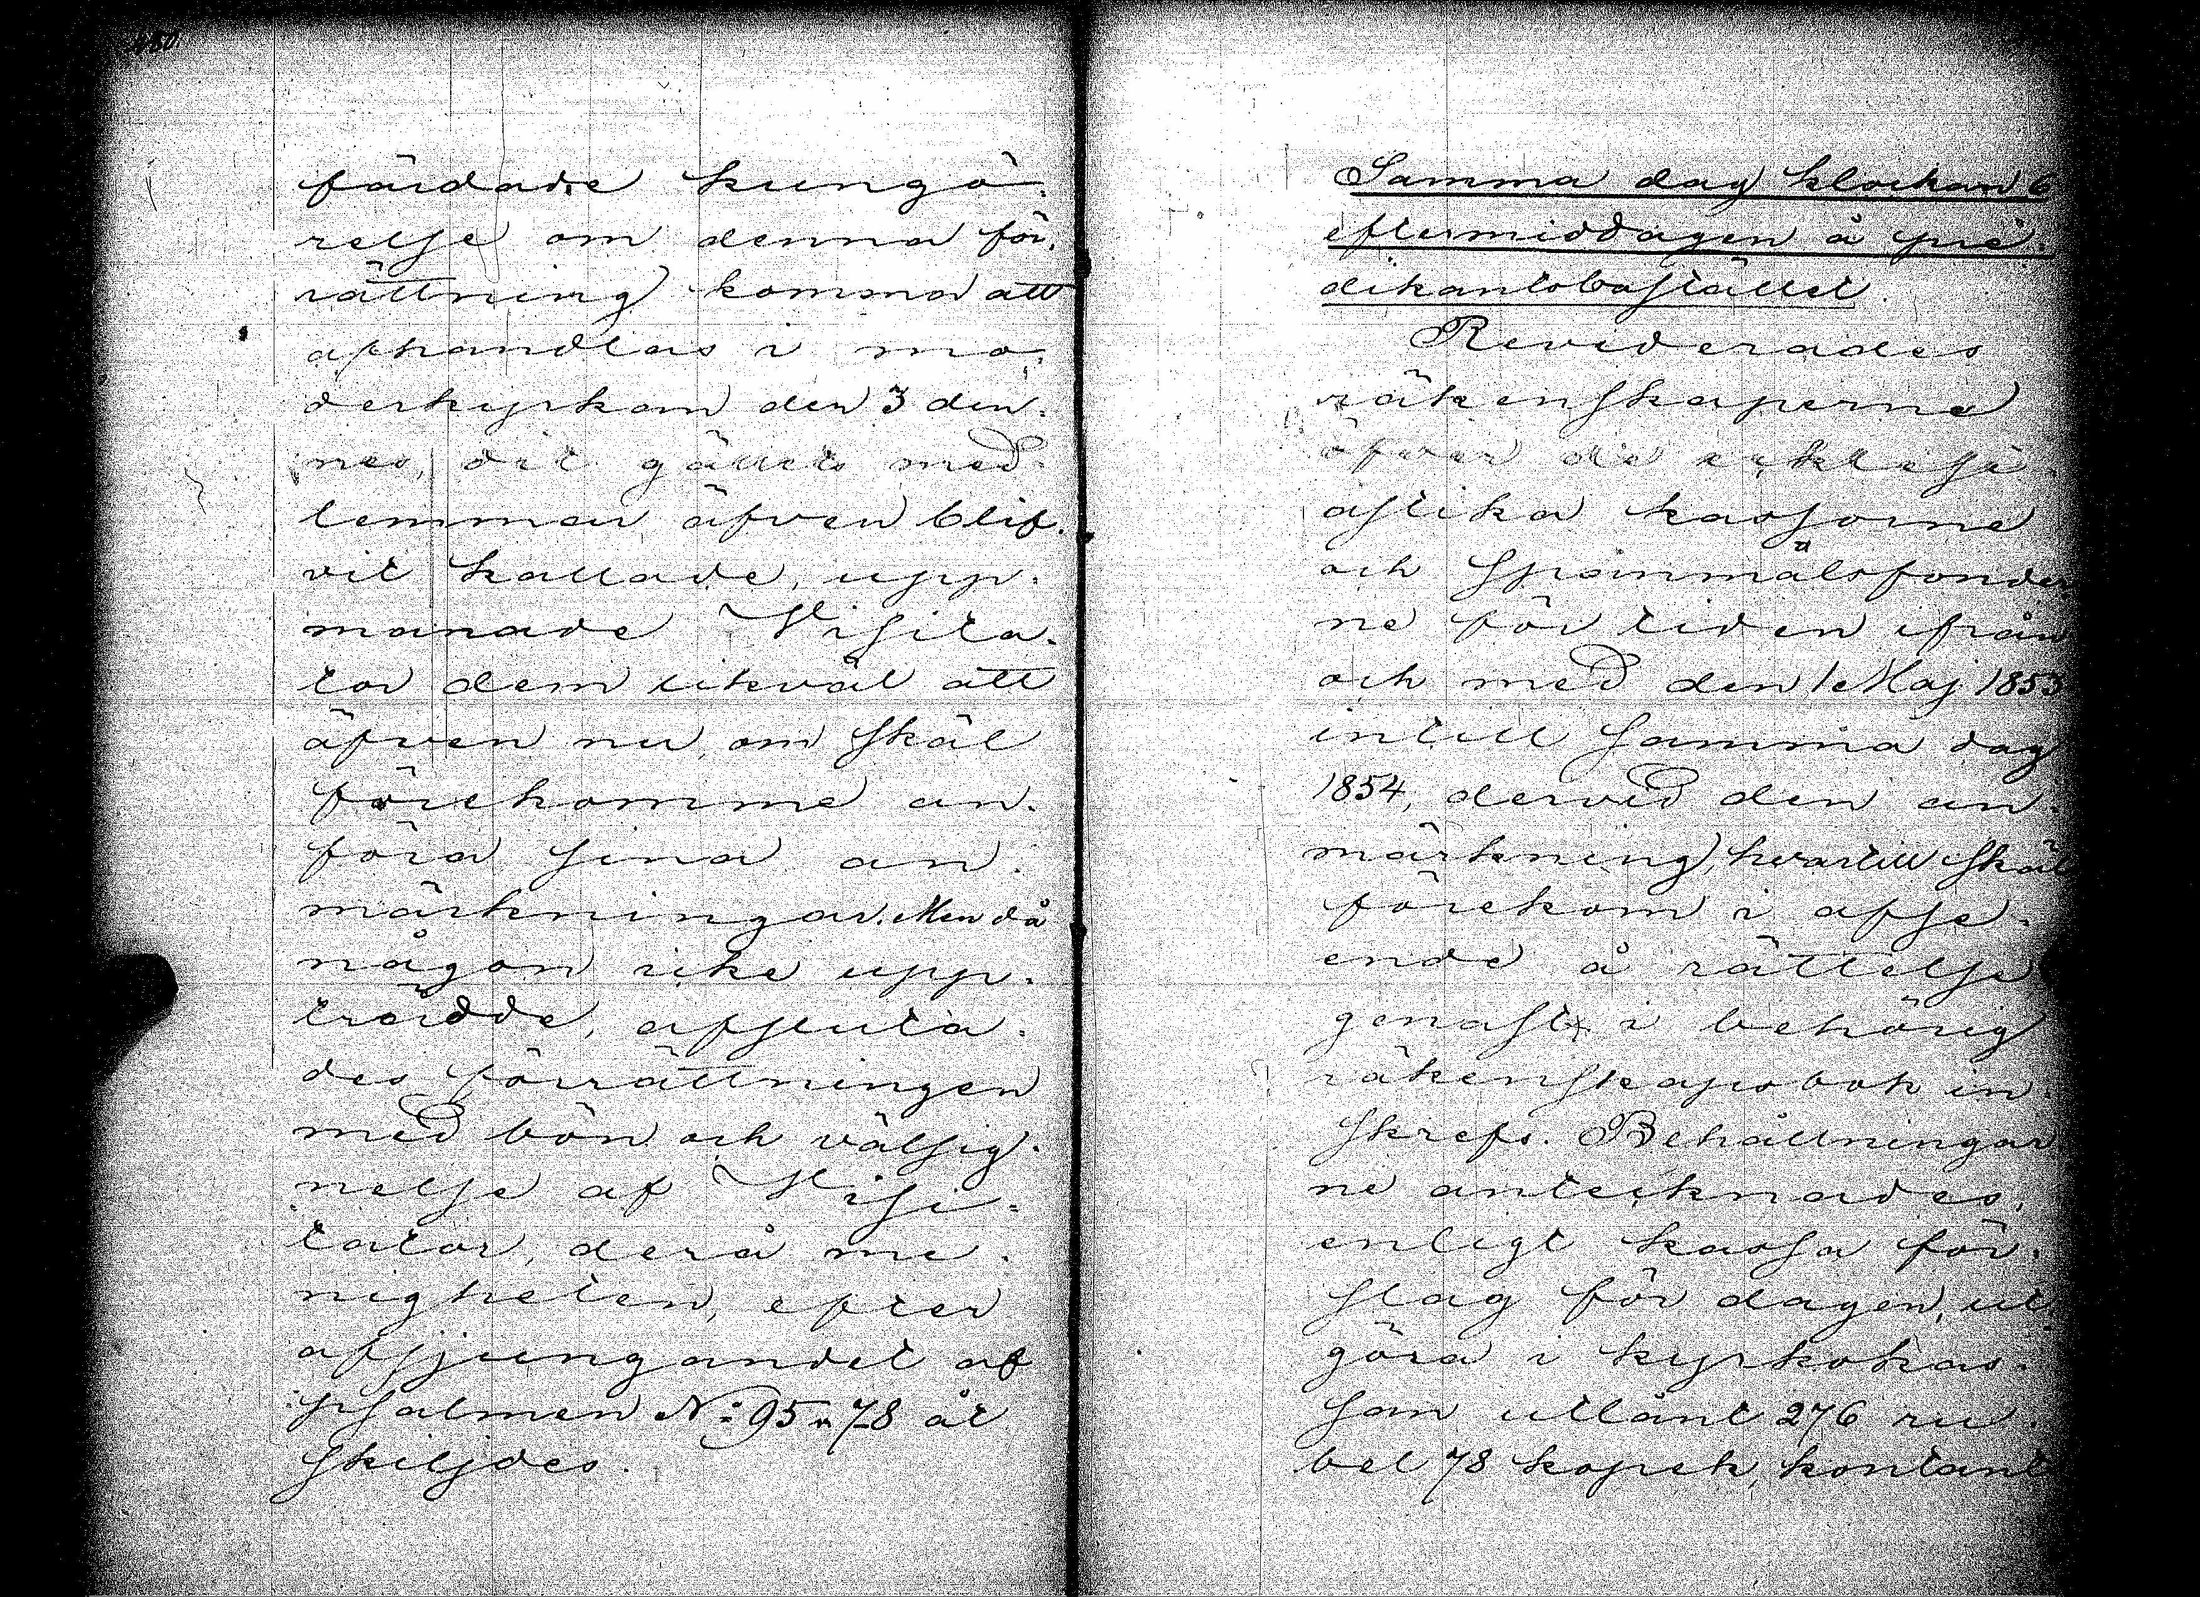 färdade kungö-
relse om denna för-
rättning komma att
afhandlas i mo-
derkyrkan den 3 den-
nes, dit gällets med-
lemmar äfven blif-
vit kallade, upp-
manade Visita-
tor dem likväl att
äfven nu, om skäl
förekomme an-
föra sina an-
märkningar. Men då
någon icke upp-
trädde, afsluta-
des förrättningen
med bön och välsig-
nelse af Visi-
tator, derå me-
nigheten, efter
afsjungandet af
psalmen N:o 95 v. 7-8 åt
skiljdes.
Samma dag klockan 6
eftermiddagen å pre-
dikantsbostället.
Reviderades
räkenskaperna
öfver de ecklesi-
astika kassorne
och spannmålsfonder
ne för tiden ifrån
och med den 1 Maj 1853
intill samma dag
1854, dervid den an-
märkning, hvartill skäl
förekom i afse-
ende å rättelse
genast i behörig
räkenskapsbok in-
skrefs. Behållningar
ne antecknades,
enligt kassa för-
slag för dagen, ut
göra i kyrkokas-
san utlånt 276 ru-
bel 78 kopek, kontant